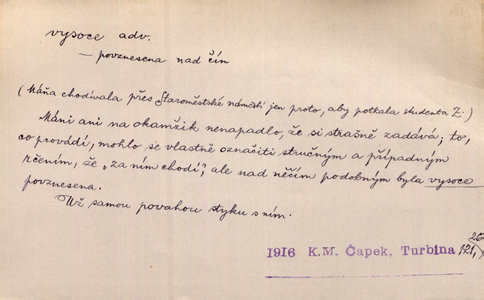 vysoce adv.
— povznesena nad čím
(Máňa chodívala přes Staroměstské náměstí jen proto, aby potkala studenta Z.)
Máni ani na okamžik nenapadlo, že si strašně zadává; to,
co provádí, mohlo se vlastně označiti stručným a případným
rčením, že „za ním chodí", ale nad něčím podobným byla vysoce
povznesena.
Už samou povahou styku s ním.
1916 K.M. Čapek, Turbina 121,